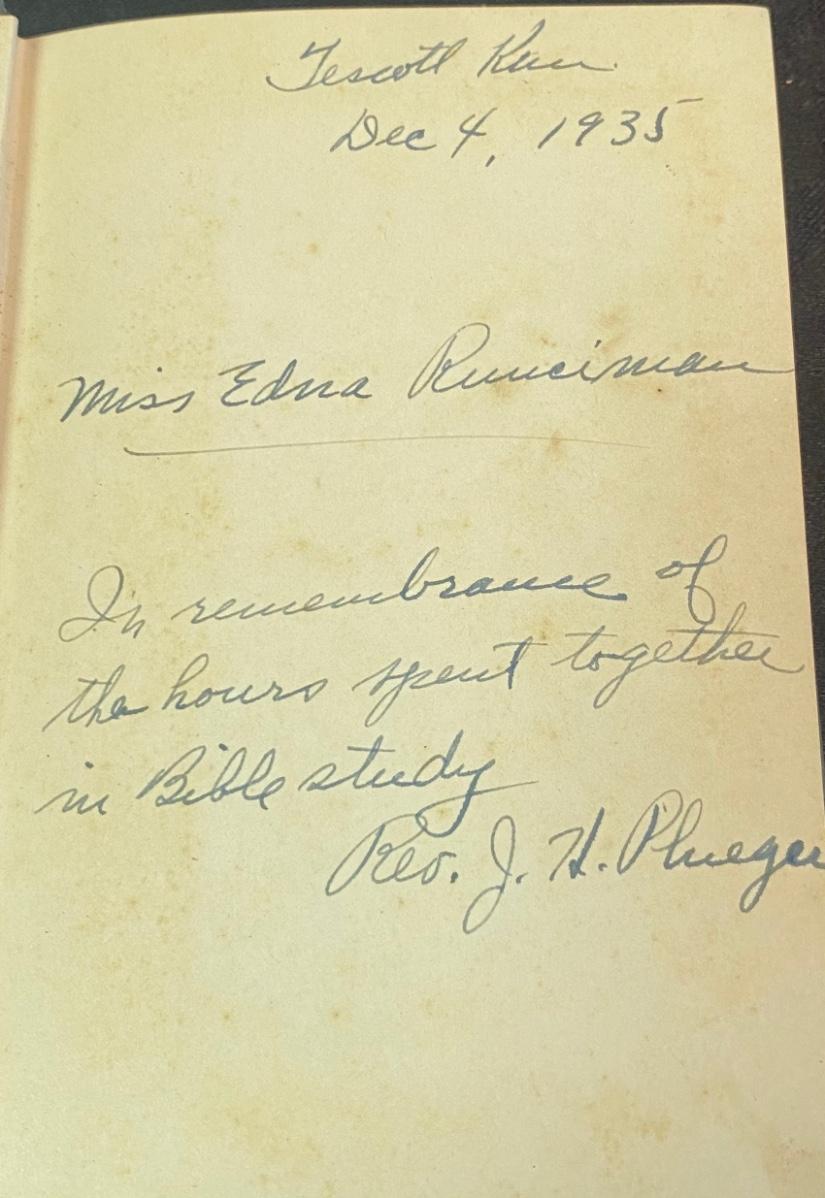 Tescott Kan.
Dec 4, 1935
Miss Edna Runciman
In remembrance of
the hours spent together
in Bible study
Rev. J. H. Plueger